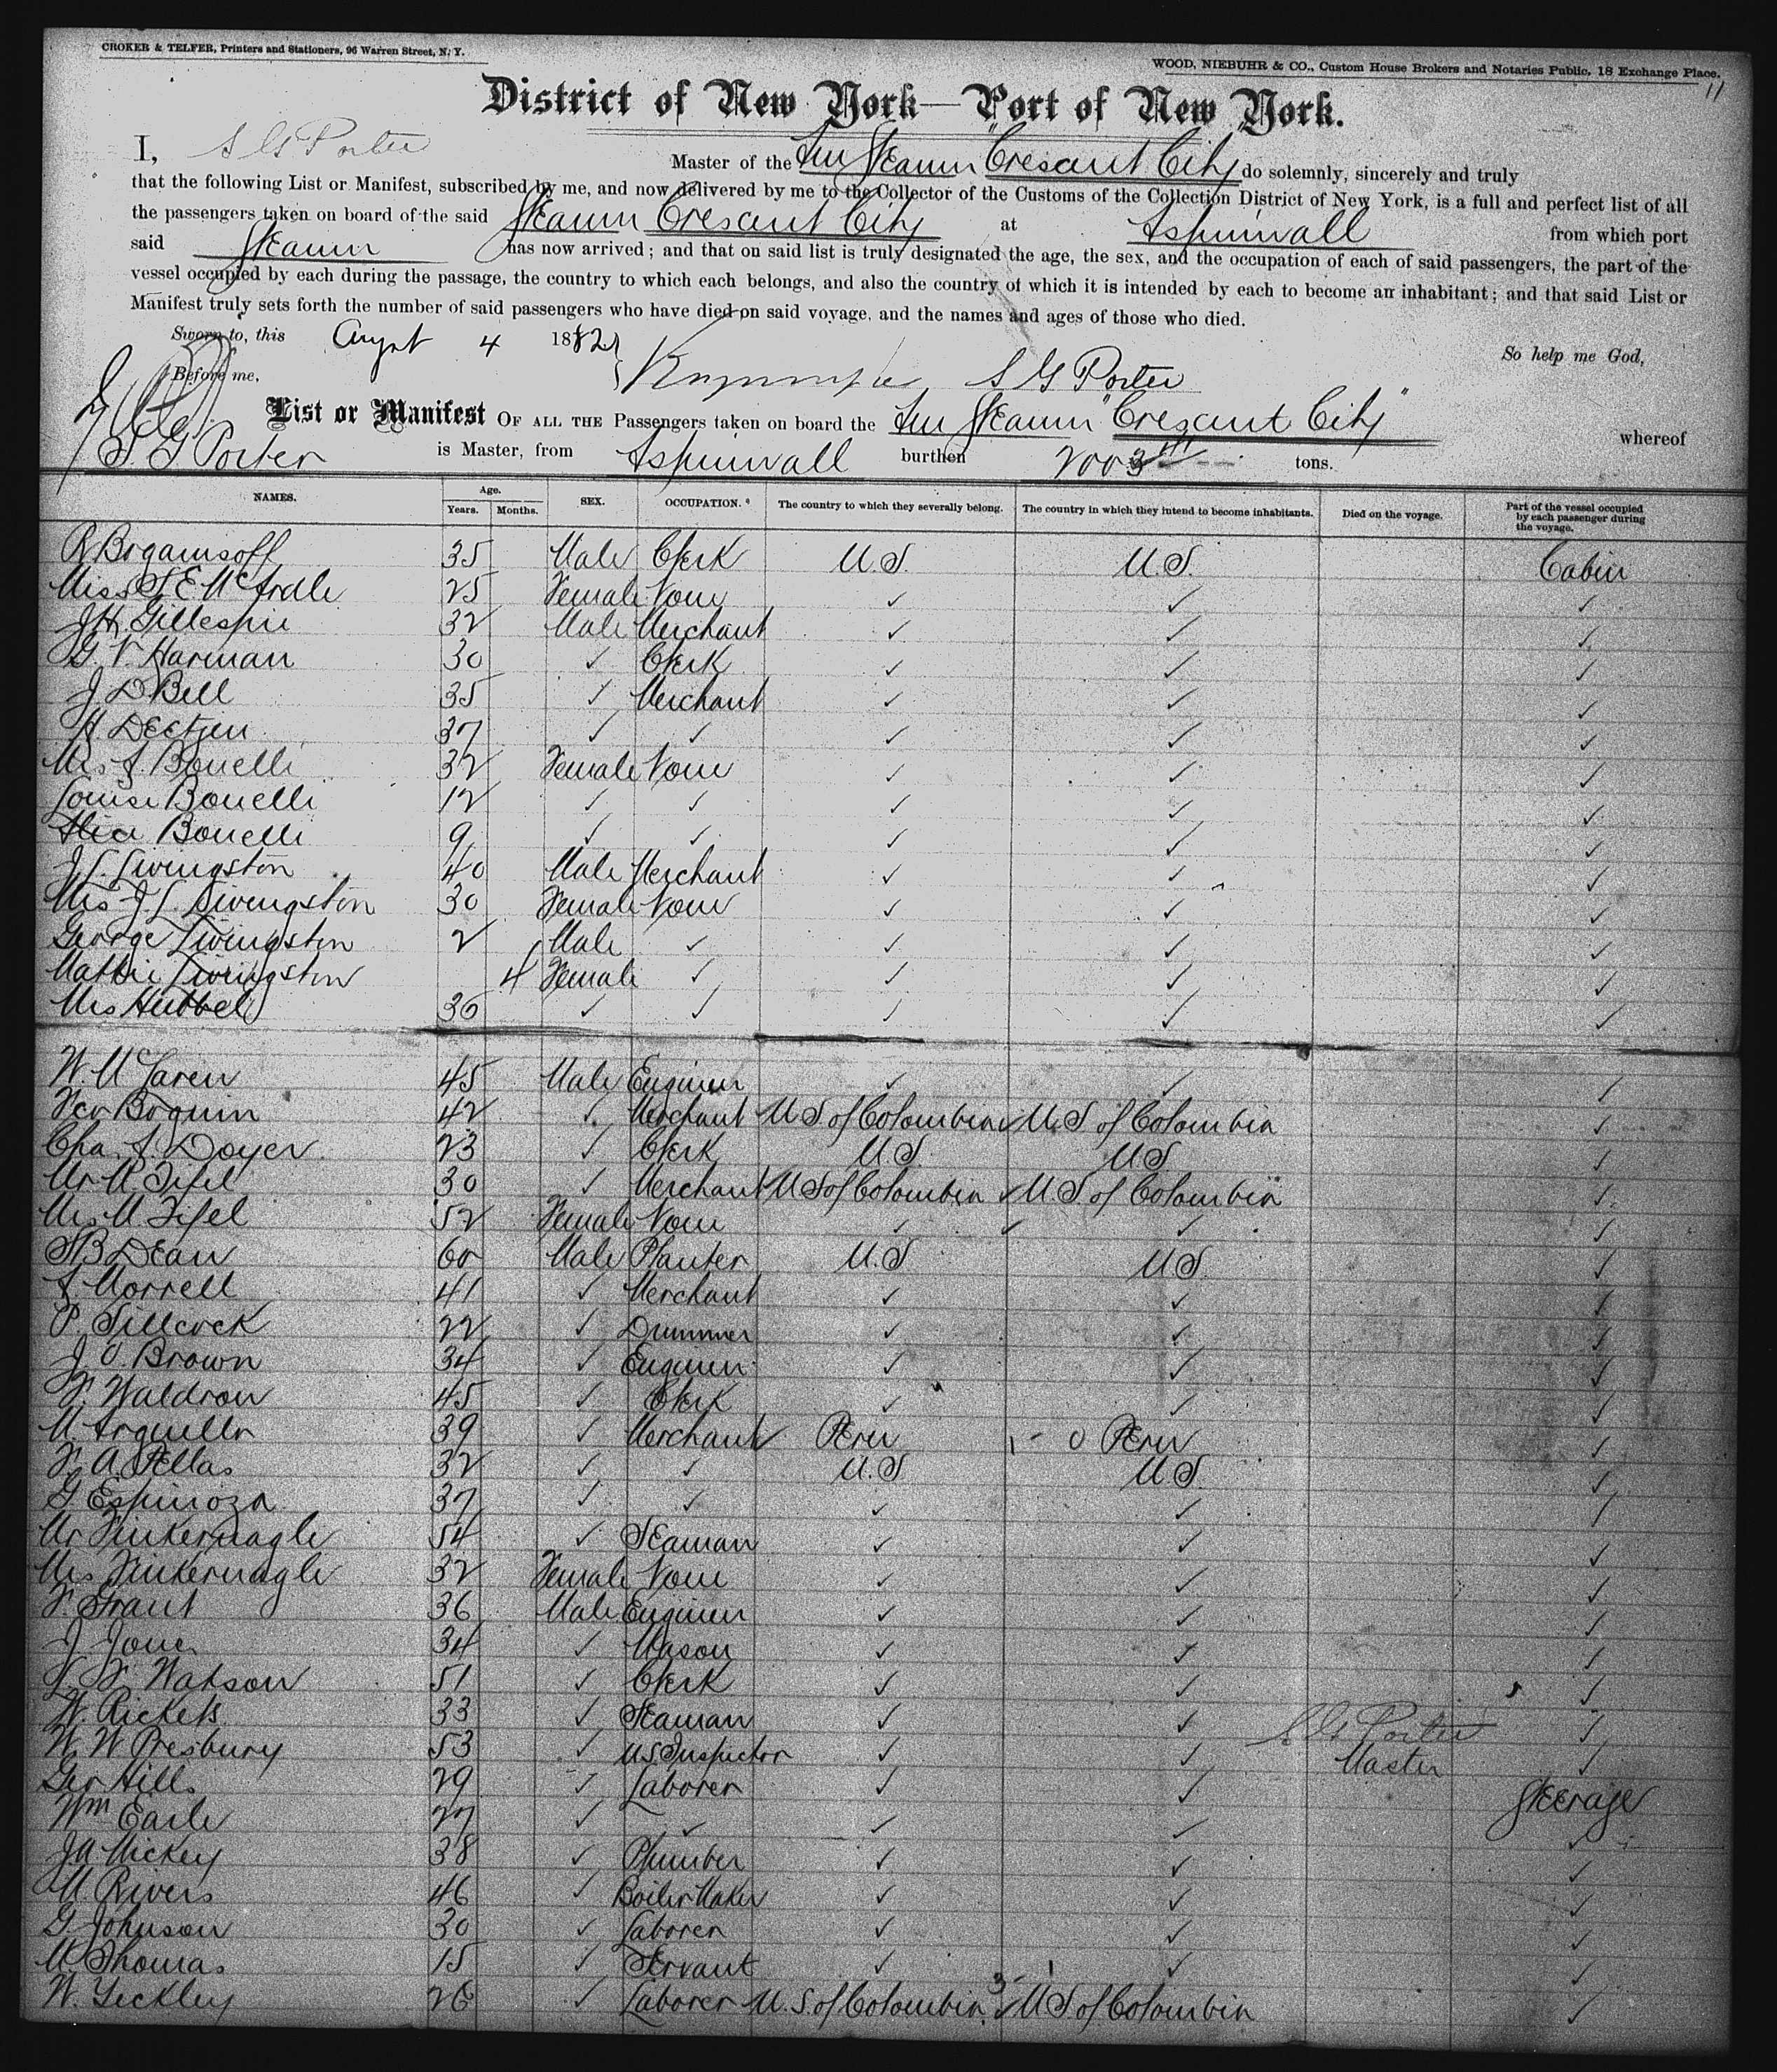 CROKER & TELFER, Printers and Stationers, 96 Warren Street, N. Y.
WOOD, NIEBUHR & CO., Custom House Brokers and Notaries Public, 18 Exchange Place.
11
District of New York—Port of New York.
I, S G Porter Master of the Am Steamr "Cresant City" do solemnly, sincerely and truly
that the following List or Manifest, subscribed by me, and now delivered by me to the Collector of the Customs of the Collection District of New York, is a full and perfect list of all
the passengers taken on board of the said Steamr Cresant City at Aspinwall from which port
said Steamr has now arrived; and that on said list is truly designated the age, the sex, and the occupation of each of said passengers, the part of the
vessel occupied by each during the passage, the country to which each belongs, and also the country of which it is intended by each to become an inhabitant; and that said List or
Manifest truly sets forth the number of said passengers who have died on said voyage, and the names and ages of those who died.
Sworn to, this August 4 1882 So help me God,
Before me, S G Porter
List or Manifest OF ALL THE Passengers taken on board the Am Steamr "Cresant City" whereof
S. G Porter is Master, from Aspinwall burthen 2003 tons.
NAMES. Age. Years. Months. SEX. OCCUPATION. The country to which they severally belong. The country in which they intend to become inhabitants. Died on the voyage. Part of the vessel occupied by each passenger during the voyage.
R Bogamsoff 35 Male Clerk U.S. U.S. Cabin
Miss S. E. McArdle 25 Female None ✓ ✓ ✓
J H Gillespie 32 Male Merchant ✓ ✓ ✓
G. V. Harman 30 ✓ Clerk ✓ ✓ ✓
J. D Bell 35 ✓ Merchant ✓ ✓ ✓
H. Deetjen 37 ✓ ✓ ✓ ✓ ✓
Mrs A. Bonelli 32 Female None ✓ ✓ ✓
Louise Bonelli 12 ✓ ✓ ✓ ✓ ✓
Alice Bonelli 9 ✓ ✓ ✓ ✓ ✓
J L. Livingston 40 Male Merchant ✓ ✓ ✓
Mrs J. L. Livingston 30 Female None ✓ ✓ ✓
George Livingston 2 Male ✓ ✓ ✓ ✓
Mattie Livingston 4 Female ✓ ✓ ✓ ✓
Mrs Hubbel 36 ✓ ✓ ✓ ✓ ✓
W. McLaren 45 Male Engineer ✓ ✓ ✓
Boquin 42 ✓ Merchant U S of Colombia ✓ U. S of Colombia ✓
Cha. A. Doyer 23 ✓ Clerk U.S. U S ✓
Mr M. Tifel 30 ✓ Merchant U S of Colombia ✓ U. S. of Colombia ✓
Mrs M. Tifel 52 Female None ✓ ✓ ✓ ✓
S B Dean 60 Male Planter U. S U S. ✓
A. Morrell 41 ✓ Merchant ✓ ✓ ✓
P. Sillcock 22 ✓ Drummer ✓ ✓ ✓
J. O. Brown 34 ✓ Engineer ✓ ✓ ✓
F. Waldron 45 ✓ Clerk ✓ ✓ ✓
M. Arguello 39 ✓ Merchant ✓ Peru 1 - 0 Peru ✓
F. A. Pellas 32 ✓ ✓ U. S U S. ✓
G. Espinoza 37 ✓ ✓ ✓ ✓ ✓
Mr Finkernagle 54 ✓ Seaman ✓ ✓ ✓
Mrs Finkernagle 32 Female None ✓ ✓ ✓
F. Grant 36 Male Engineer ✓ ✓ ✓
J Jones 34 ✓ Mason ✓ ✓ ✓
L. F. Watson 51 ✓ Clerk ✓ ✓ ✓
W. Rickets 33 ✓ Seaman ✓ ✓ S. G Porter ✓
W. W Presbury 53 ✓ U.S. Inspector ✓ ✓ Master ✓
Geo Hills 29 ✓ Laborer ✓ ✓ Steerage
Wm Earle 27 ✓ ✓ ✓ ✓ ✓
J M Mickey 38 ✓ Plumber ✓ ✓ ✓
M. Rivers 46 ✓ Boiler Maker ✓ ✓ ✓
G. Johnson 30 ✓ Laborer ✓ ✓ ✓
M. Thomas 15 ✓ Servant ✓ ✓ ✓
W. Leckley 26 ✓ Laborer U. S. of Colombia 3 - 1 ✓ U S. of Colombia ✓